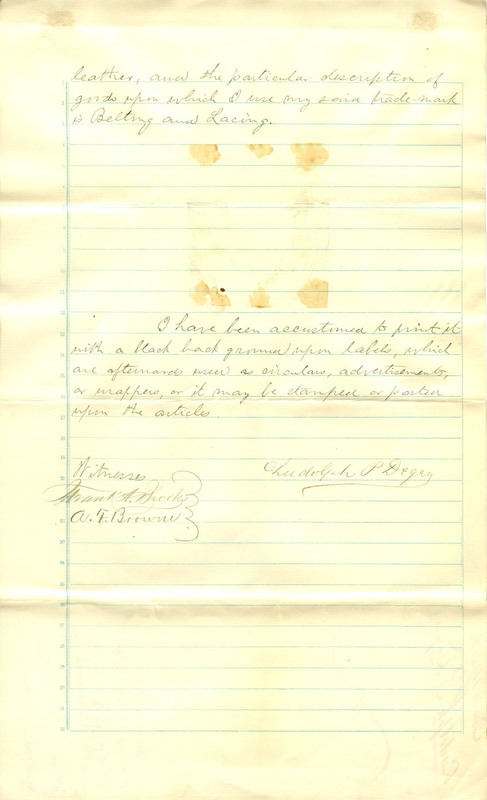 leather, and the particular description of
goods upon which I use my said trade-mark
is Belting and Lacing.
I have been accustomed to print it
with a black back ground upon labels, which
are afterwards used as circulars, advertisements,
or wrappers, or it may be stamped or pasted
upon the articles
Witnesses
Ludolph P Degen
Frank A. Brooks
A. F. Browne